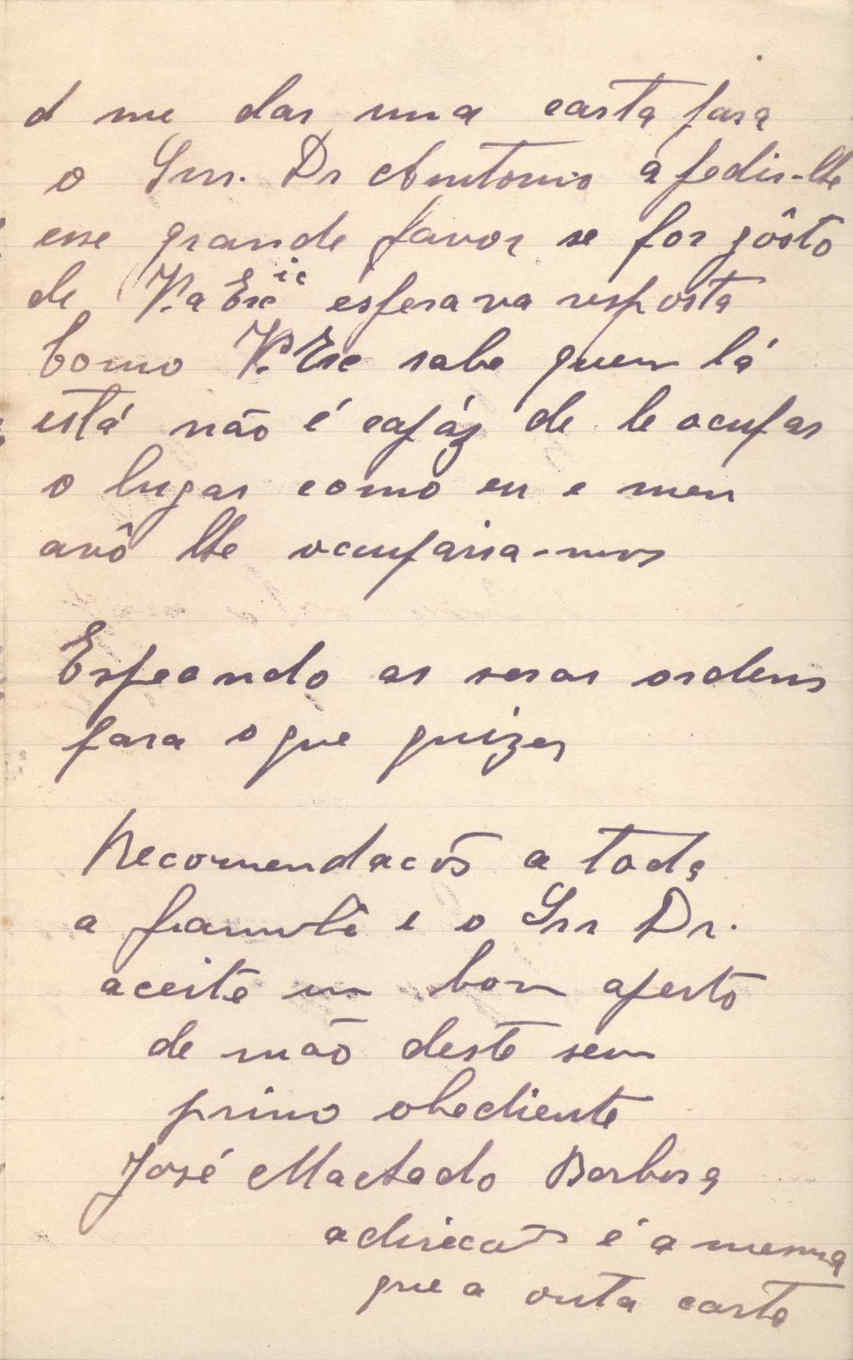 d me dar uma carta para
o Snr. Dr Amtonio a pedir-lhe
esse grande favor se for gôsto
de V.a Exc ia esperava resposta
Como V. Exc sabe quem lá
está não é capáz de le ocupar
o lugar como eu e meu
avô lhe ocuparia-mos
Espeando as suas ordens
para o que quizer
Recomendacõs a toda
a framulê e o Snr Dr.
aceite um bom aperto
de mão deste seu
primo obediente
José Machado Barbosa
a direcão é a mesma
que a outa carta